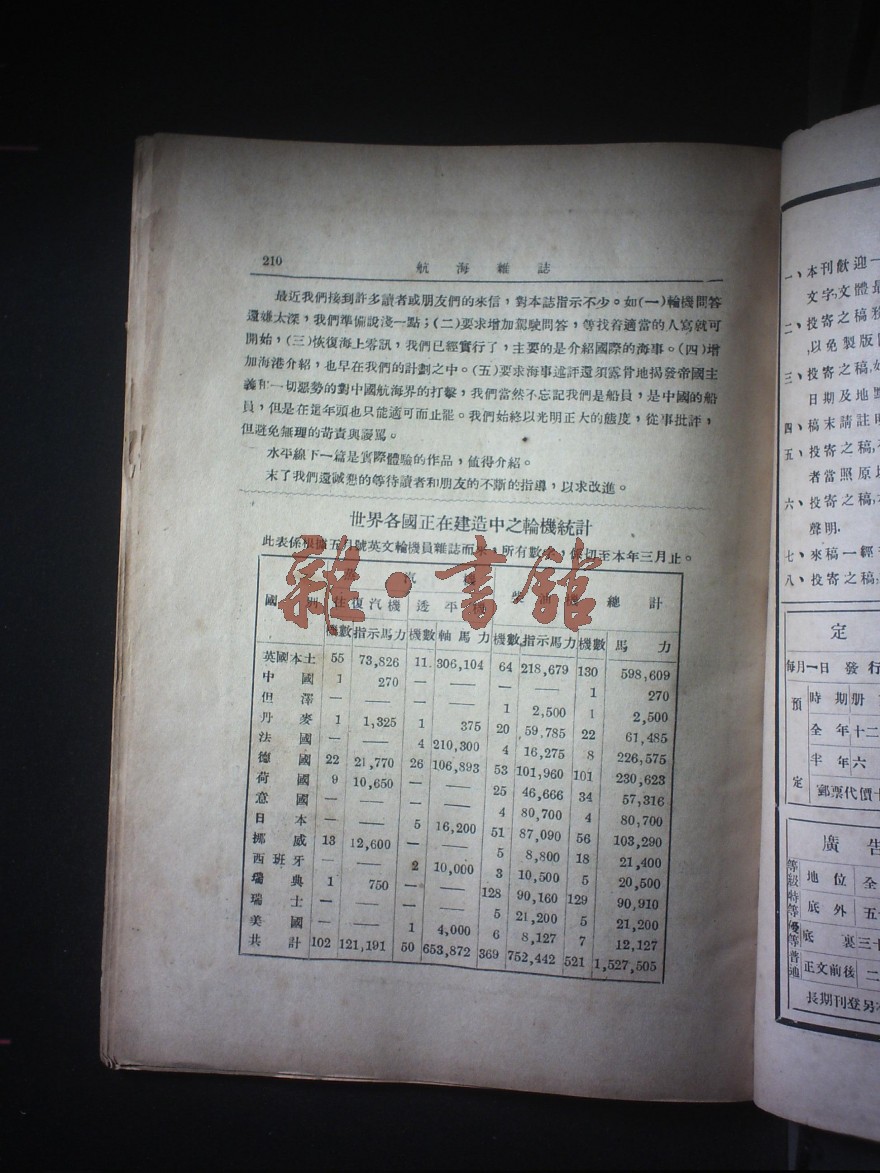 210
航海雜誌
最近我們接到許多讀者或朋友們的來信，對本誌指示不少。如(一)輪機問答
還嫌太深，我們準備說淺一點；(二)要求增加駕駛問答，等找着適當的人寫就可
開始，(三)恢復海上零訊，我們已經實行了，主要的是介紹國際的海事。(四)增
加海港介紹，也早在我們的計劃之中。(五)要求海事述評還須露骨地揭發帝國主
義和一切惡勢的對中國航海界的打擊，我們當然不忘記我們是船員，是中國的船
員，但是在這年頭也只能適可而止罷。我們始終以光明正大的態度，從事批評，
但避免無理的苛責與謾罵。
水平線下一篇是實際體驗的作品，值得介紹。
末了我們還誠懇的等待讀者和朋友的不斷的指導，以求改進。
世界各國正在建造中之輪機統計
此表係根據五月號英文輪機員雜誌而來，所有數字，係切至本年三月止。
國別 汽機 柴油機 總計
往復汽機 透平機
機數 指示馬力 機數 軸馬力 機數 指示馬力 機數 馬力
英國本土 55 73,826 11 306,104 64 218,679 130 598,609
中國 1 270 — — — — 1 270
但澤 — — — — 1 2,500 1 2,500
丹麥 1 1,325 1 375 20 59,785 22 61,485
法國 — — 4 210,300 4 16,275 8 226,575
德國 22 21,770 26 106,893 53 101,960 101 230,623
荷國 9 10,650 — — 25 46,666 34 57,316
意國 — — — — 4 80,700 4 80,700
日本 — — 5 16,200 51 87,090 56 103,290
挪威 13 12,600 — — 5 8,800 18 21,400
西班牙 — — 2 10,000 3 10,500 5 20,500
瑞典 1 750 — — 128 90,160 129 90,910
瑞士 — — — — 5 21,200 5 21,200
美國 — — 1 4,000 6 8,127 7 12,127
共計 102 121,191 50 653,872 369 752,442 521 1,527,505
雜·書館
一、本刊歡迎一
文字,文體是
二、投寄之稿務
,以免製版
三、投寄之稿,如
日期及地點
四、稿末請註明
五、投寄之稿,
者當照原
六、投寄之稿,
聲明,
七、來稿一經
八、投寄之稿,
定
每月一日發行
預定
時期 册
全年 十二
半年 六
郵票代價十
廣告
等級 地位 全
特等 底外 五
優等 底裏 三十
普通 正文前後 二
長期刊登另